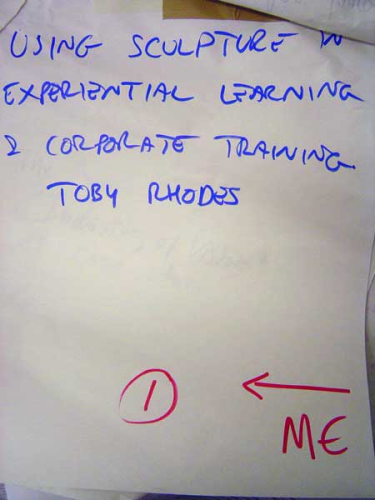 USING SCULPTURE IN
EXPERIENTIAL LEARNING
& CORPORATE TRAINING.
TOBY RHODES
1
ME